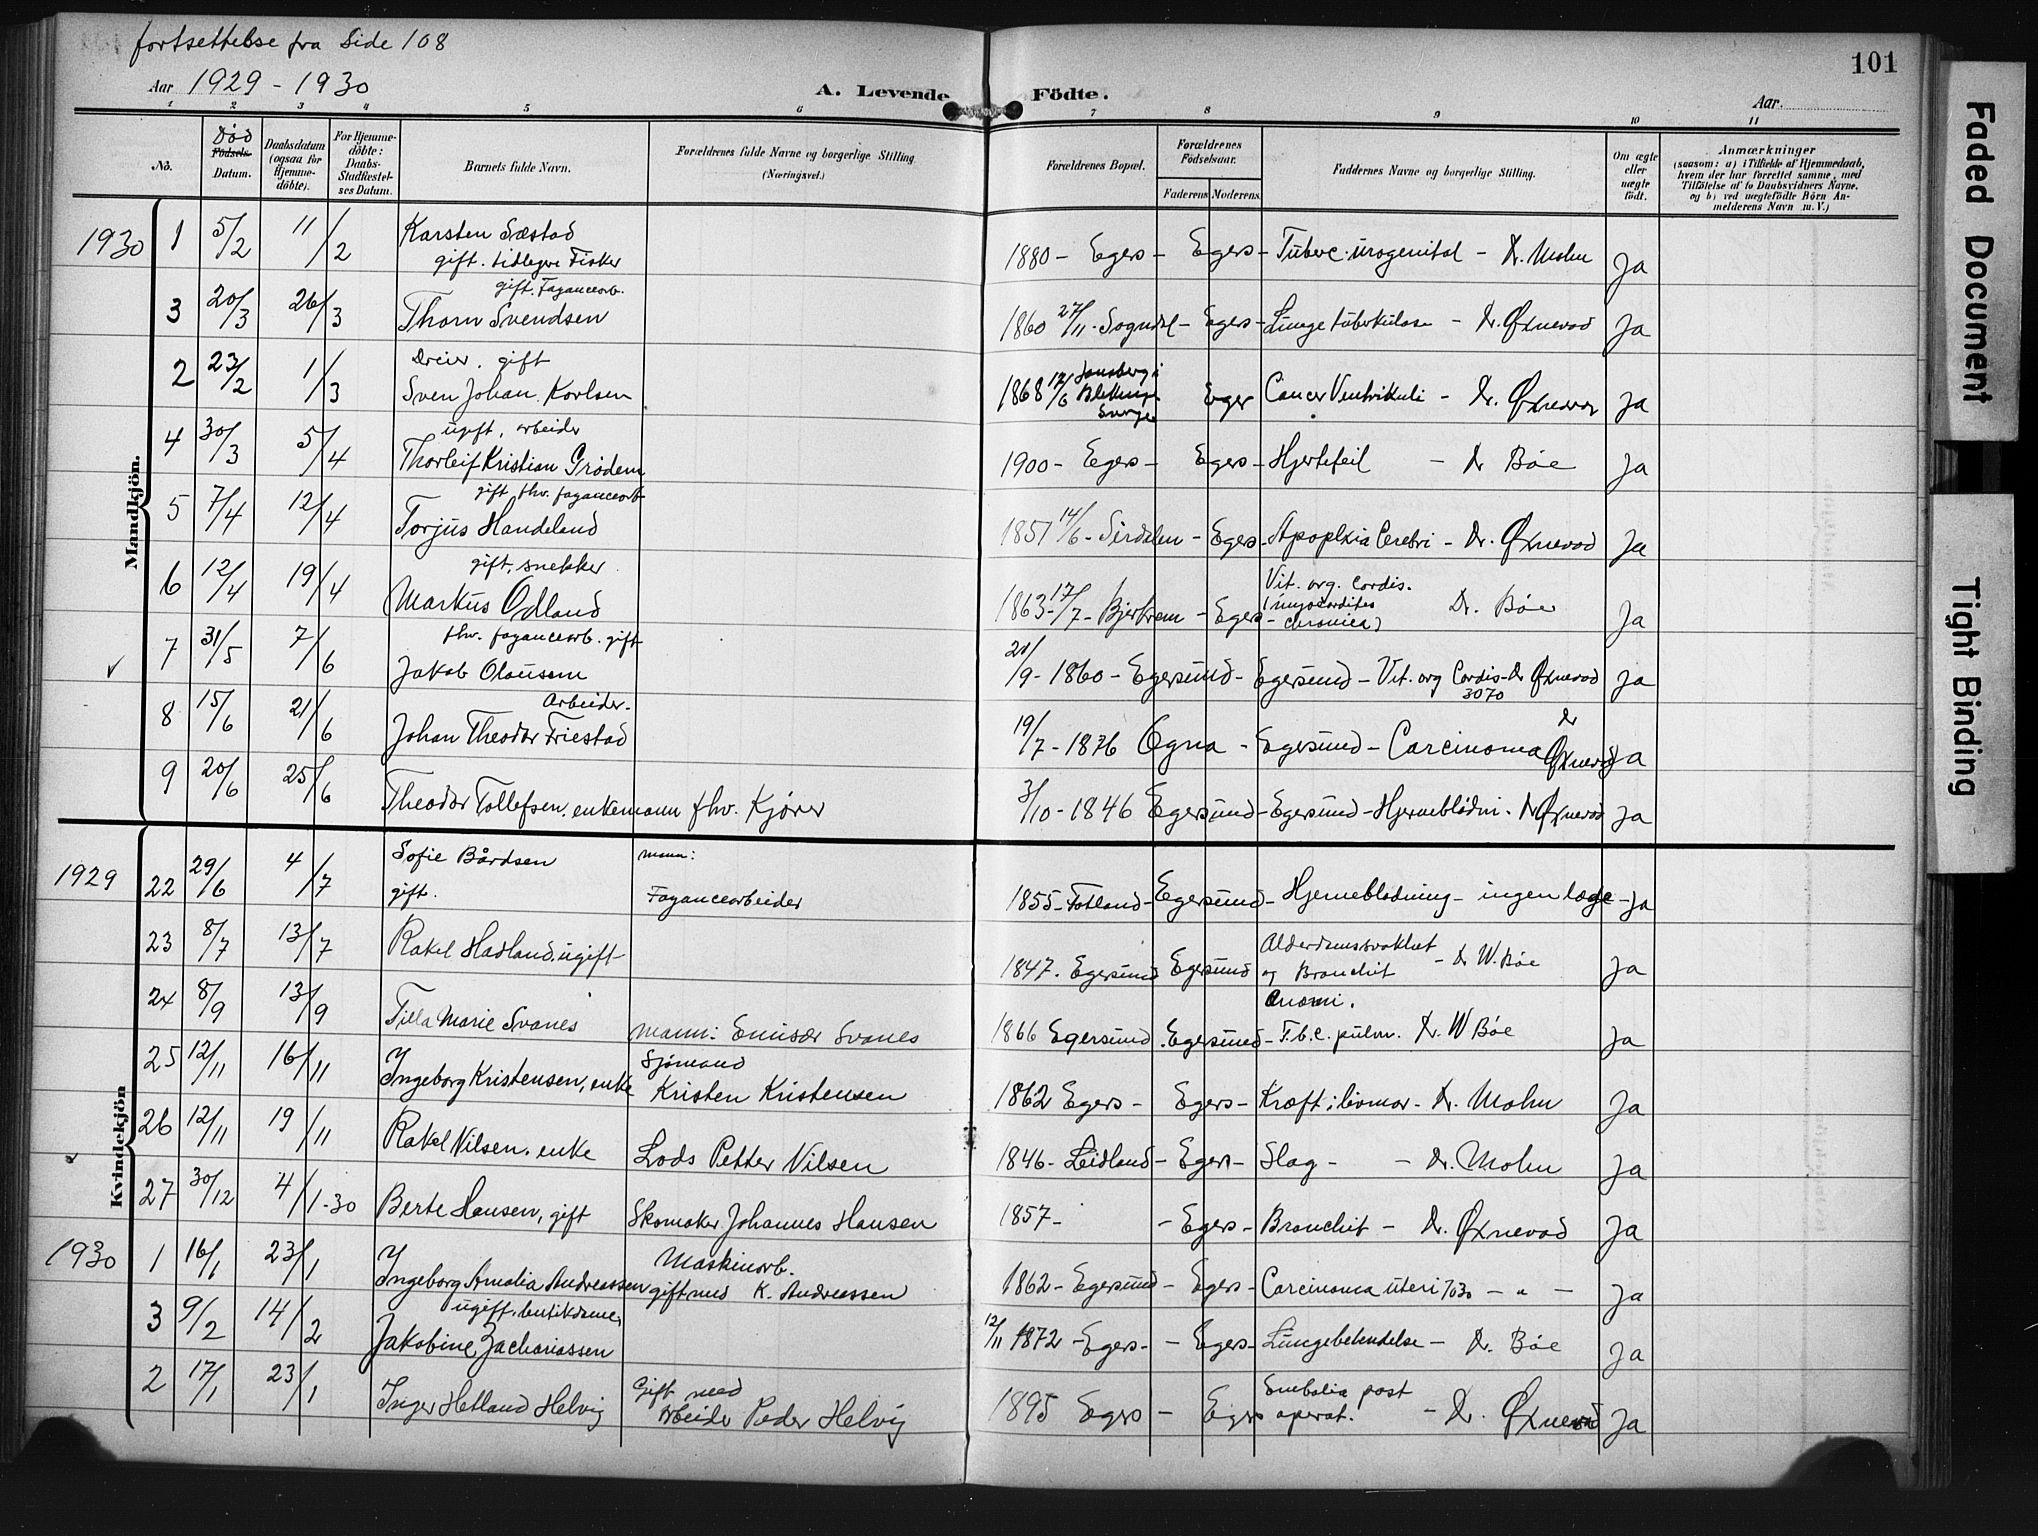 fortsettelse fra Side 108
101
Aar 1929 - 1930
A. Levende Födte.
Aar.
1 2 3 4 5 6 7 8 9 10 11
No.
Död
Födsels-
Datum.
Daabsdatum
(ogsaa for
Hjemme-
döbte).
For Hjemme-
döbte:
Daabs-
Stadfæstel-
ses Datum.
Barnets fulde Navn.
Forældrenes fulde Navne og borgerlige Stilling
(Næringsvei.)
Forældrenes Bopæl.
Forældrenes
Födselsaar.
Faderens
Moderens
Faddernes Navne og borgerlige Stilling.
Om ægte
eller
uægte
født.
Anmærkninger
(saasom: a) i Tilfælde af Hjemmedaab,
hvem der har forrettet samme, med
Tilföielse af to Daabsvidners Navne,
og b) ved uægtefödte Börn An-
melderens Navn m. V.)
Mandkjön.
1930 1 5/2 11/2 Karsten Sæstad 1880 - Egers - Egers - Tuberc. urogenital - Dr. Mohn Ja
gift. tidligere Fisker
gift. Fayancearb.
3 20/3 26/3 Thorn Svendsen 1860 27/11 - Sogndal - Egers - Lungetuberkulose - Dr. Øxnevad Ja
Dreier. gift
2 23/2 1/3 Sven Johan Karlsen 1868 17/6 Eger Cancer Ventrikuli - Dr. Øxnevad Ja
ugift, arbeider
4 30/3 5/4 Thorleif Kristian Grødem 1900 - Egers - Egers - Hjertefeil - Dr Bøe Ja
gift, fhv. fayancearb
5 7/4 12/4 Torjus Handeland 1851 14/6 - Sirdalen - Egers - Apoplexia Cerebri - Dr. Øxnevad Ja
gift, snekker
6 12/4 19/4 Markus Odland 1863 - 17/7 - Bjerkrem - Egers - Vit. org. cordis.
(myocarditis
chronica) Dr. Bøe Ja
fhv. fayancearb. gift
7 31/5 7/6 Jakob Olausen 21/9 - 1860 - Egersund - Egersund - Vit. org Cordis - Dr Øxnevad Ja
3070
Arbeider.
8 15/6 21/6 Johan Theodor Friestad 19/7 - 1876 Ogna - Egersund - Carcinoma Dr Øxnevad Ja
9 20/6 25/6 Theodor Tollefsen, enkemann fhv. Kjører 3/10 - 1846 Egersund - Egersund - Hjerneblødn. - Dr Øxnevad Ja
Kvindekjön
1929 22 29/6 4/7 Sofie Bårdsen mann:
gift. Fayancearbeider 1855 - Fotland - Egersund - Hjerneblødning - ingen læge - Ja
23 8/7 13/7 Rakel Hadland, ugift 1847. Egersund Egersund Alderdomssvakhet
og Bronchit - Dr W. Bøe Ja
24 8/9 13/9 Tilla Marie Svanes mann: Emisær Svanes 1866 Egersund . Egersund - T.b.c. pulm. Dr. W Bøe Ja
25 12/11 16/11 Ingeborg Kristensen, enke Sjömand
Kristen Kristensen 1862 Egers - Egers - Kræft i livmor - Dr. Mohn Ja
26 12/11 19/11 Rakel Nilsen, enke Lods Petter Nilsen 1846 - Leidland - Egers - Slag - - Dr. Mohn Ja
27 30/12 4/1-30 Berte Hansen, gift Skomaker Johannes Hansen 1857 - - Egers - Bronchit - Dr. Øxnevad Ja
1930 1 16/1 23/1 Ingeborg Amalia Andreassen Maskinarb.
gift med K. Andreassen 1862 - Egersund - Egers - Carcinoma uteri 7030 - " - Ja
ugift. butikdame
3 9/2 14/2 Jakobine Zachariassen 12/11 1872 - Egers - - Egers - Lungebetændelse - Dr. Bøe Ja
2 17/1 23/1 Inger Hetland Helvig Gift med
arbeider Peder Helvig 1895 Egers - Egers Embolia post
operat. - Dr. Øxnevad Ja
Faded Document
Tight Binding